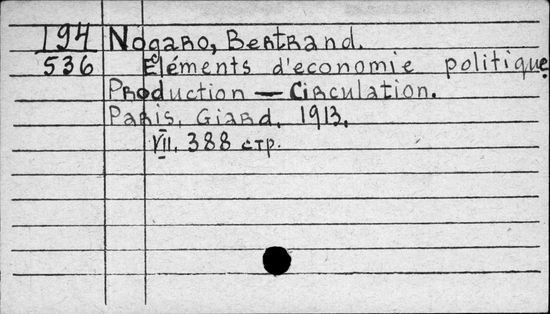 194 Nogaro, Bertrand.
536 Eléments d'economie politique.
Production — Circulation.
Paris, Giard, 1913.
VII, 388 стр.